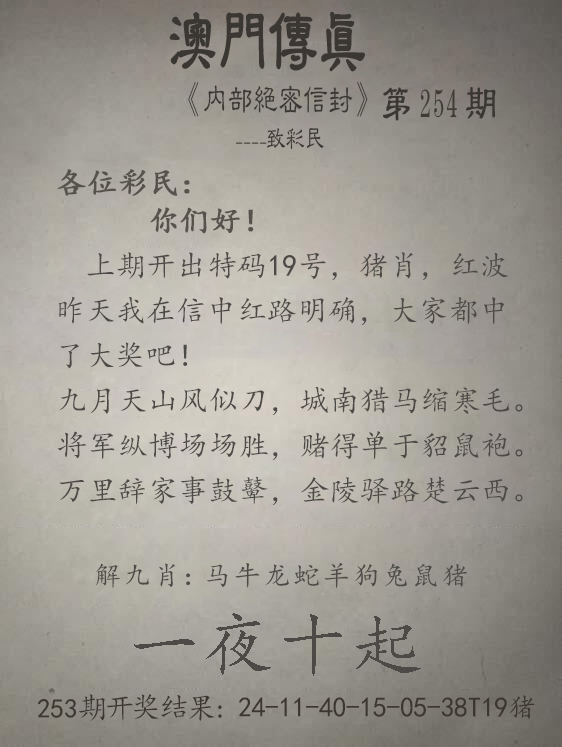 澳門傳眞
《内部絕密信封》第254期
----致彩民
各位彩民：
你们好！
上期开出特码19号，猪肖，红波
昨天我在信中红路明确，大家都中
了大奖吧！
九月天山风似刀，城南猎马缩寒毛。
将军纵博场场胜，赌得单于貂鼠袍。
万里辞家事鼓鼙，金陵驿路楚云西。
解九肖：马牛龙蛇羊狗兔鼠猪
一夜十起
253期开奖结果：24-11-40-15-05-38T19猪